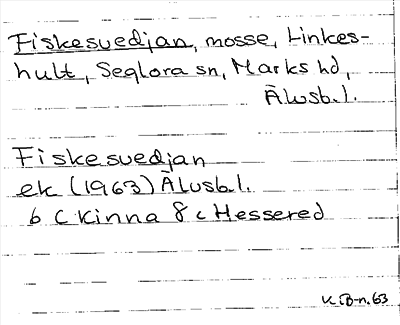 Fiskesvedjan, mosse, Linkes-
hult, Seglora sn, Marks hd,
Älvsb.l.
Fiskesvedjan
ek (1963) Älvsb.l.
6 C Kinna 8 c Hessered
KEB-n. 63